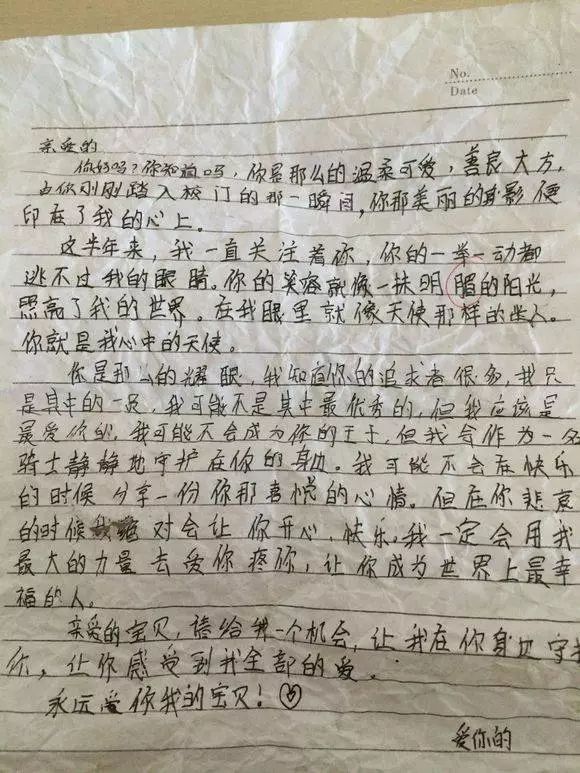 No.
Date
亲爱的
你好吗?你知道吗,你是那么的温柔可爱,善良大方,
当你刚刚踏入校门的那一瞬间,你那美丽的身影便
印在了我的心上。
这半年来,我一直关注着你,你的一举一动都
逃不过我的眼睛。你的笑容就像一抹明媚的阳光,
照亮了我的世界。在我眼里就像天使那样的迷人。
你就是我心中的天使。
你是那么的耀眼,我知道你的追求者很多,我只
是其中的一员,我可能不是其中最优秀的,但我应该是
最爱你的,我可能不会成为你的王子,但我会作为一名
骑士静静地守护在你的身边。我可能不会在快乐
的时候分享一份你那喜悦的心情。但在你悲哀
的时候我绝对会让你开心、快乐。我一定会用我
最大的力量去爱你疼你,让你成为世界上最幸
福的人。
亲爱的宝贝,请给我一个机会,让我在你身边守
你,让你感受到我全部的爱。
永远爱你我的宝贝!
爱你的